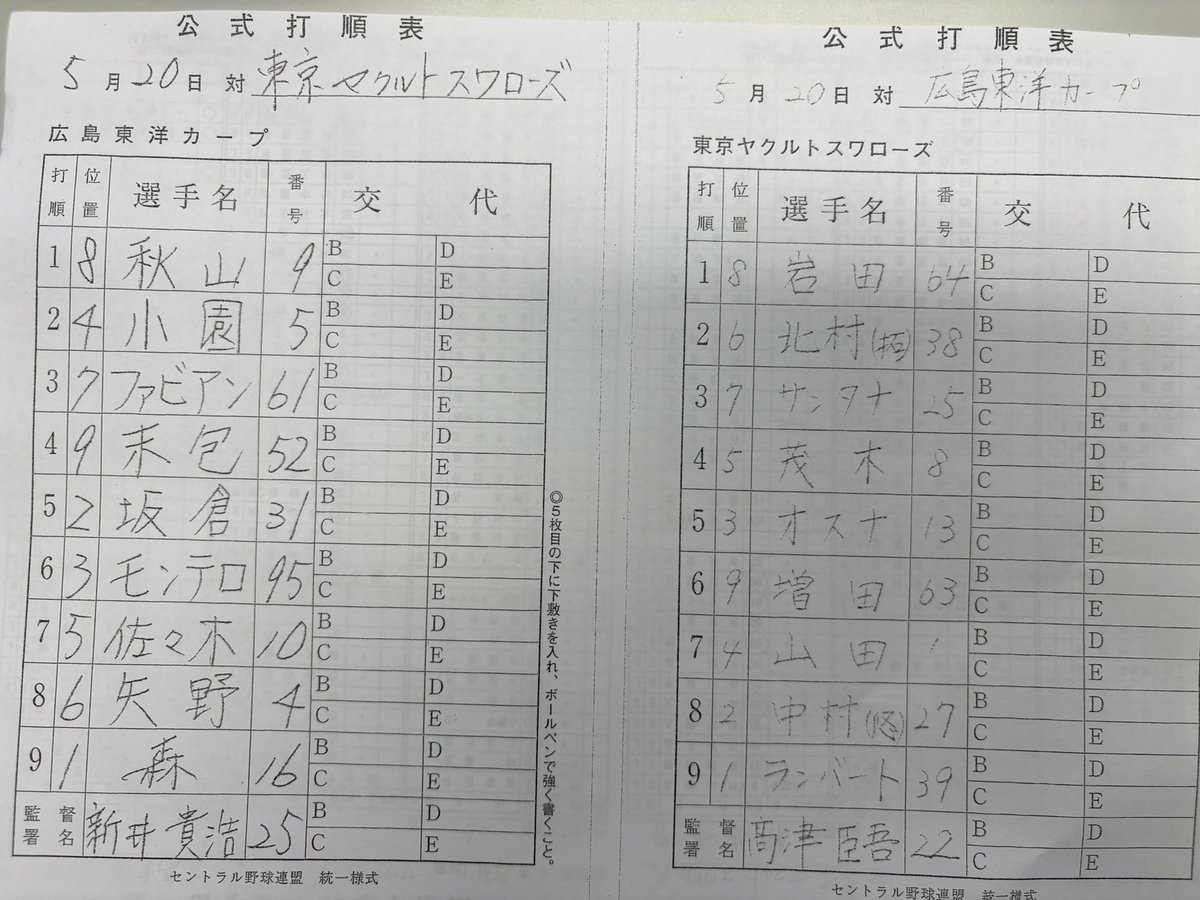 公式打順表
5月20日 対 東京ヤクルトスワローズ
広島東洋カープ
打順 位置 選手名 番号 交代
1 8 秋山 9 B D
C E
2 4 小園 5 B D
C E
3 7 ファビアン 61 B D
C E
4 9 末包 52 B D
C E
5 2 坂倉 31 B D
C E
6 3 モンテロ 95 B D
C E
7 5 佐々木 10 B D
C E
8 6 矢野 4 B D
C E
9 1 森 16 B D
C E
監督署名 新井貴浩 25 B D
C E
セントラル野球連盟 統一様式
◎5枚目の下に下敷きを入れ、ボールペンで強く書くこと。
公式打順表
5月20日 対 広島東洋カープ
東京ヤクルトスワローズ
打順 位置 選手名 番号 交代
1 8 岩田 64 B D
C E
2 6 北村(拓) 38 B D
C E
3 7 サンタナ 25 B D
C E
4 5 茂木 8 B D
C E
5 3 オスナ 13 B D
C E
6 9 増田 63 B D
C E
7 4 山田 1 B D
C E
8 2 中村(悠) 27 B D
C E
9 1 ランバート 39 B D
C E
監督署名 高津臣吾 22 B D
C E
セントラル野球連盟 統一様式